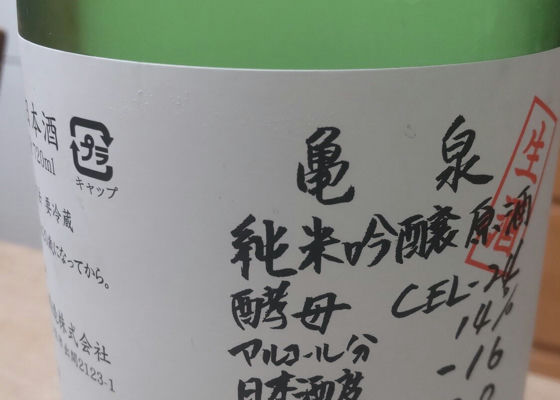 本酒
720ml
プラ
キャップ
要冷蔵
になってから。
株式会社
2123-1
亀泉
純米吟醸原酒
生酒
酵母 CEL-24
アルコール分 14%
日本酒度 -16